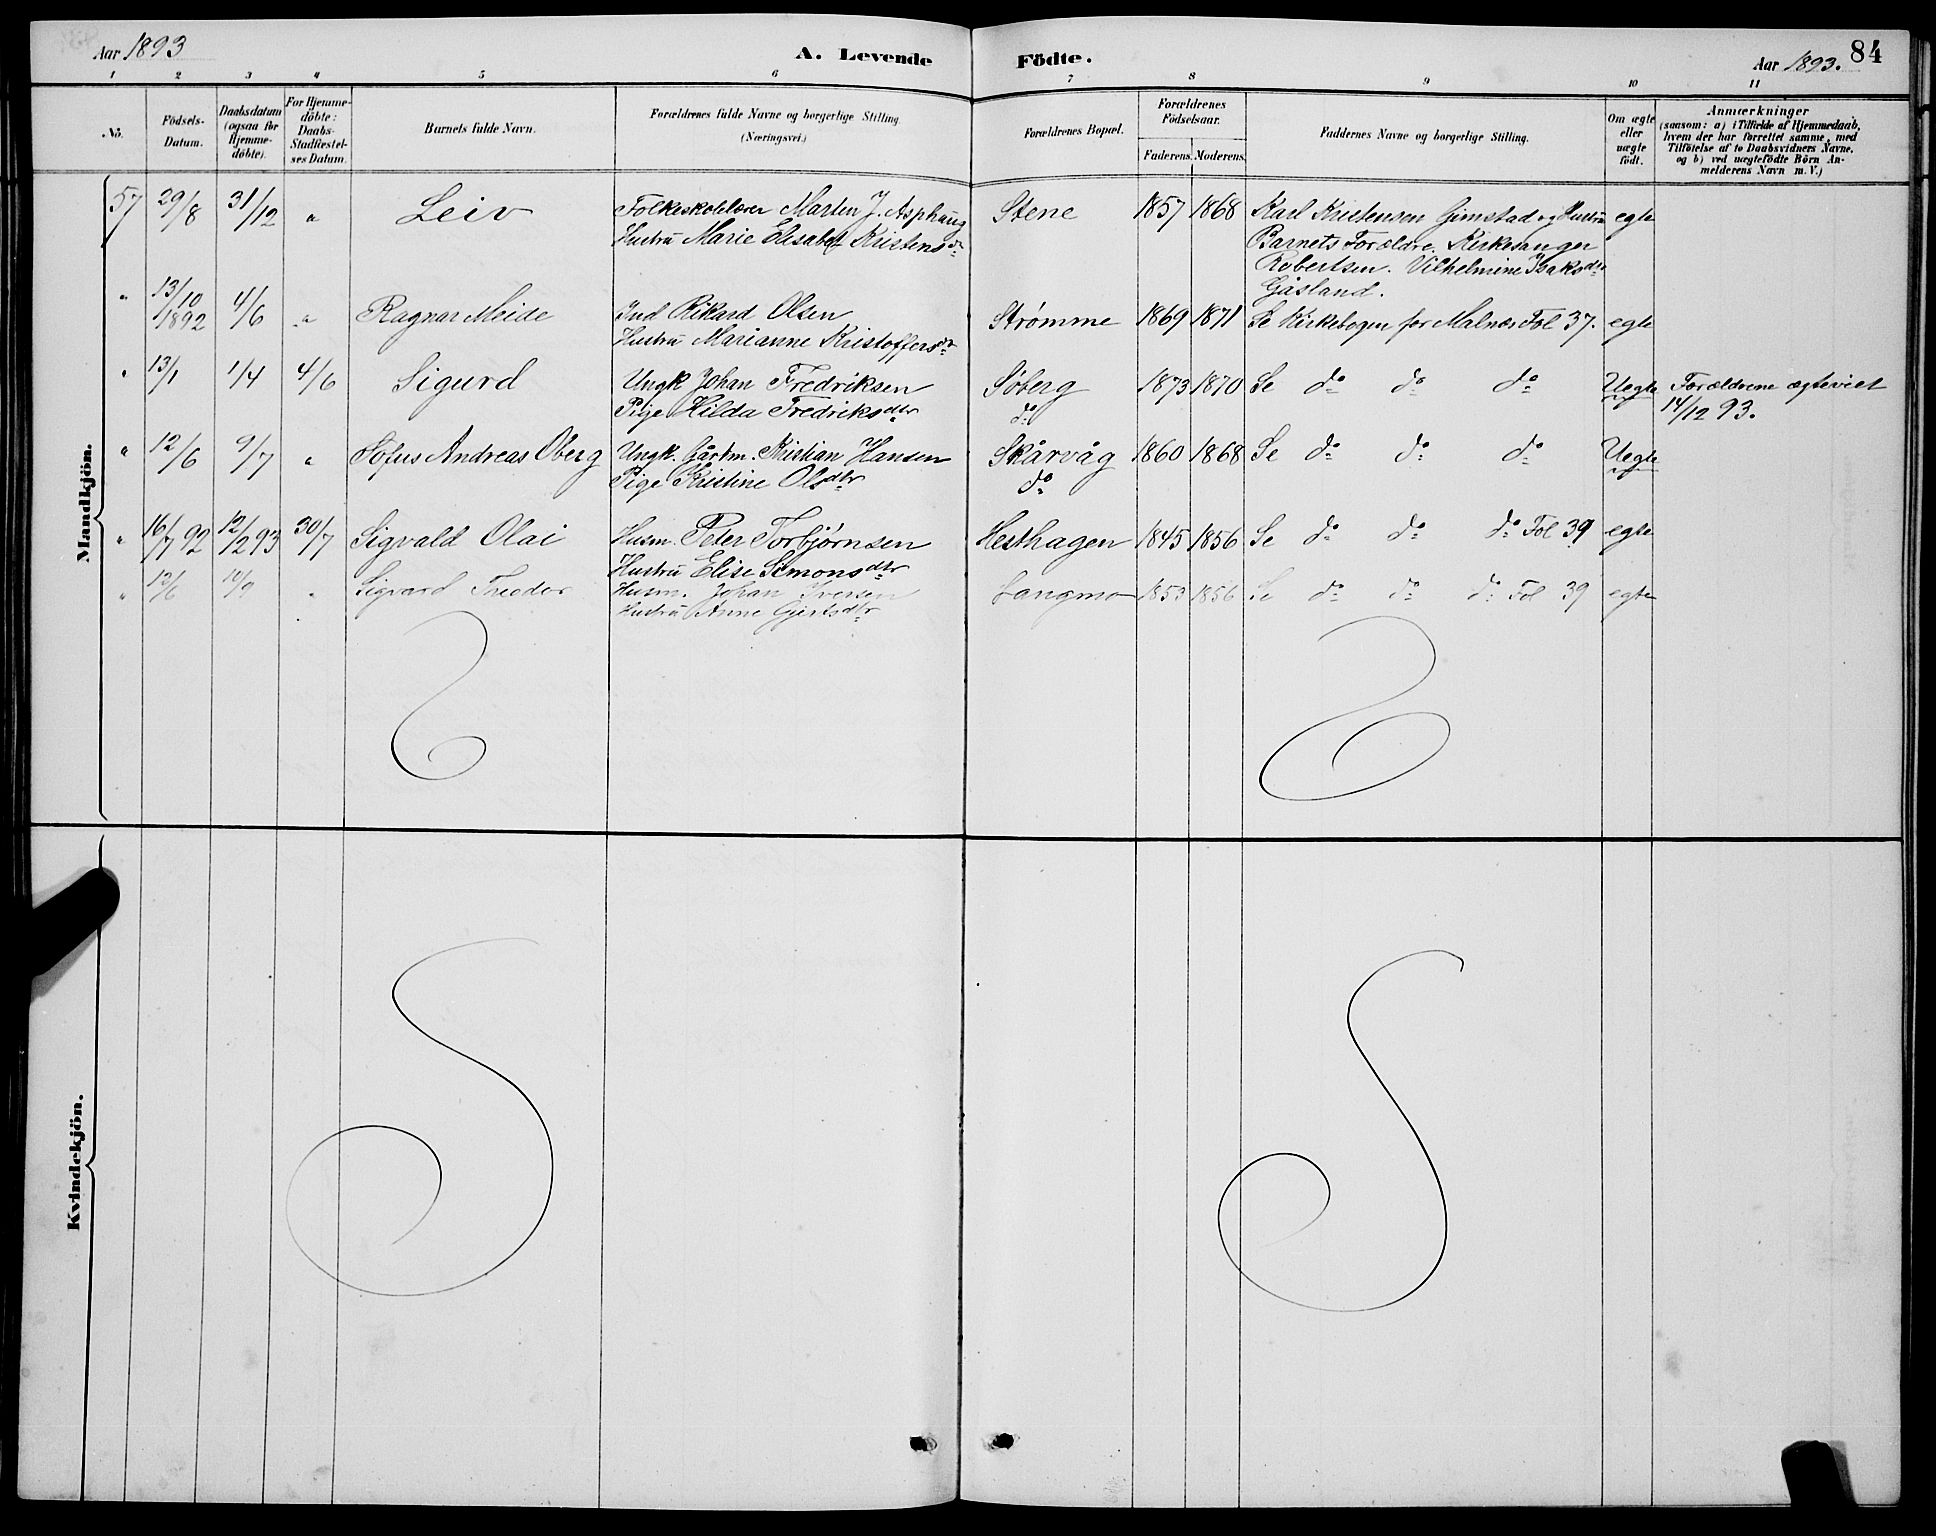 Aar 1893
A. Levende Födte.
Aar 1893.
84
1 2 3 4 5 6 7 8 9 10 11
No.
Födsels-
Datum.
Daabsdatum
(ogsaa for
Hjemme-
döbte).
For Hjemme-
döbte:
Daabs-
Stadfæstel-
ses Datum.
Barnets fulde Navn.
Forældrenes fulde Navne og borgerlige Stilling
(Næringsvei.)
Forældrenes Bopæl.
Forældrenes
Födselsaar.
Faderens. Moderens.
Faddernes Navne og borgerlige Stilling.
Om ægte
eller
uægte
födt.
Anmærkninger
(saasom: a) i Tilfælde af Hjemmedaab,
hvem der har forrettet samme, med
Tilföielse af to Daabsvidners Navne,
og b) ved uægtefödte Börn An-
melderens Navn m. V.)
Mandkjön.
57 29/8 31/12 " Leiv Folkeskolelærer Marten J. Asphaug Stene 1857 1868 Karl Kristensen Gimstad og Hustru egte
Hustru Marie Elisabet Kristensdtr Barnets Forældre. Kirkesanger
Robertsen. Vilhelmine Isaksdtr
Gåsland.
" 13/10 1892 4/6 " Ragnar Meide Ind Rikard Olsen Strømme 1869 1871 Se Kirkebogen for Malnæs Fol 37. egte
Hustru Marianne Kristoffersdtr
" 13/1 1/4 4/6 Sigurd Ungk Johan Fredriksen Søberg 1873 1870 Se do do do Uegte Forældrene ægteviet
Pige Hilda Fredriksdtr do 14/12 93.
" 12/6 9/7 " Sofus Andreas Oberg Ungk. Gårdm. Kristian Hansen Skårvåg 1860 1868 Se do do do Uegte
Pige Kristine Olsdtr do
" 16/7 92 12/2 93 30/7 Sigvald Olai Husm. Peter Torbjørnsen Hesthagen 1845 1856 Se do do do Fol 39 egte
Hustru Elise Simonsdtr
" 12/6 10/9 " Sigvard Theodor Husm. Johan Iversen Langmo 1853 1856 Se do do do Fol 39 egte
Hustru Anne Gjertsdtr
Kvindekjön.